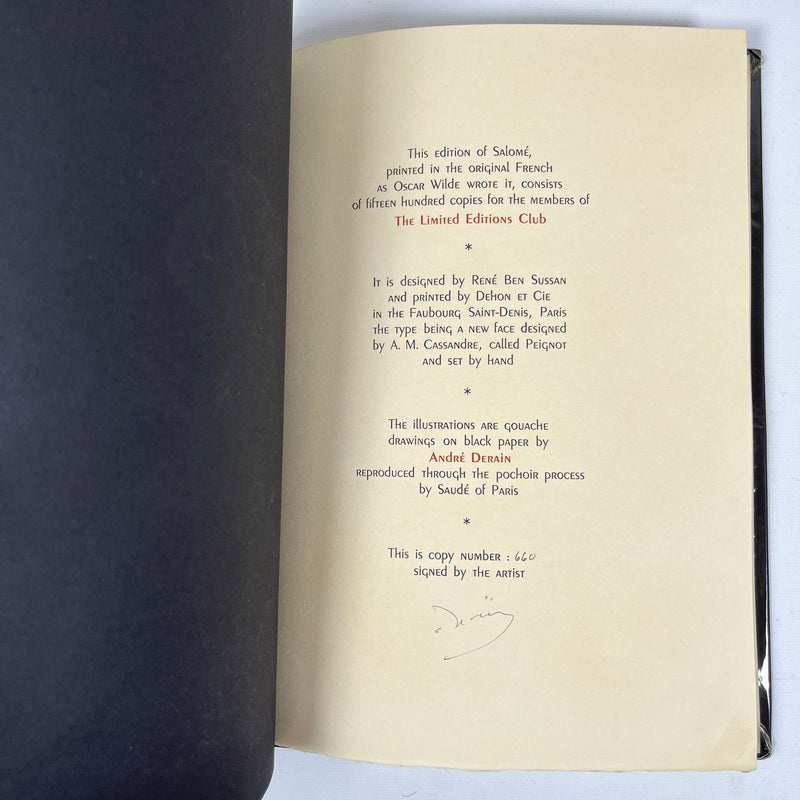 This edition of Salomé,
printed in the original French
as Oscar Wilde wrote it, consists
of fifteen hundred copies for the members of
The Limited Editions Club
*
It is designed by René Ben Sussan
and printed by Dehon et Cie
in the Faubourg Saint-Denis, Paris
the type being a new face designed
by A. M. Cassandre, called Peignot
and set by hand
*
The illustrations are gouache
drawings on black paper by
André Derain
reproduced through the pochoir process
by Saudé of Paris
*
This is copy number : 660
signed by the artist
aDerain